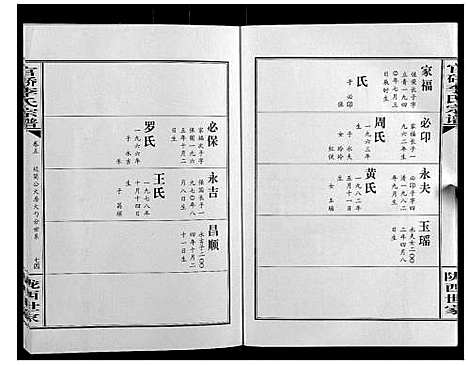 官硚李氏宗谱
家福
保荣长子字
立青一九四
〇年七月三
日辰时生
氏
子 必印
必印
家福长子一
九六二年生
周氏
一九六三年
生
子 永夫
女 玲玲
红侠
永夫
必印子字四
清一九八二
年九月生
黄氏
一九八二年
五月生
女 玉瑶
玉瑶
永夫女二〇〇
二年四月八
日生
陇西世家
官硚李氏宗谱
卷五
十四
必保
家福次子字
保铜一九六
五年十月二
日生
罗氏
一九六六年
生
子 永吉
永吉
保国长子一
九七〇年八
月八日生
王氏
一九七八年
十月十四日
生
子 昌顺
昌顺
永吉子二〇〇
四年十月二
十一日生
陇西世家